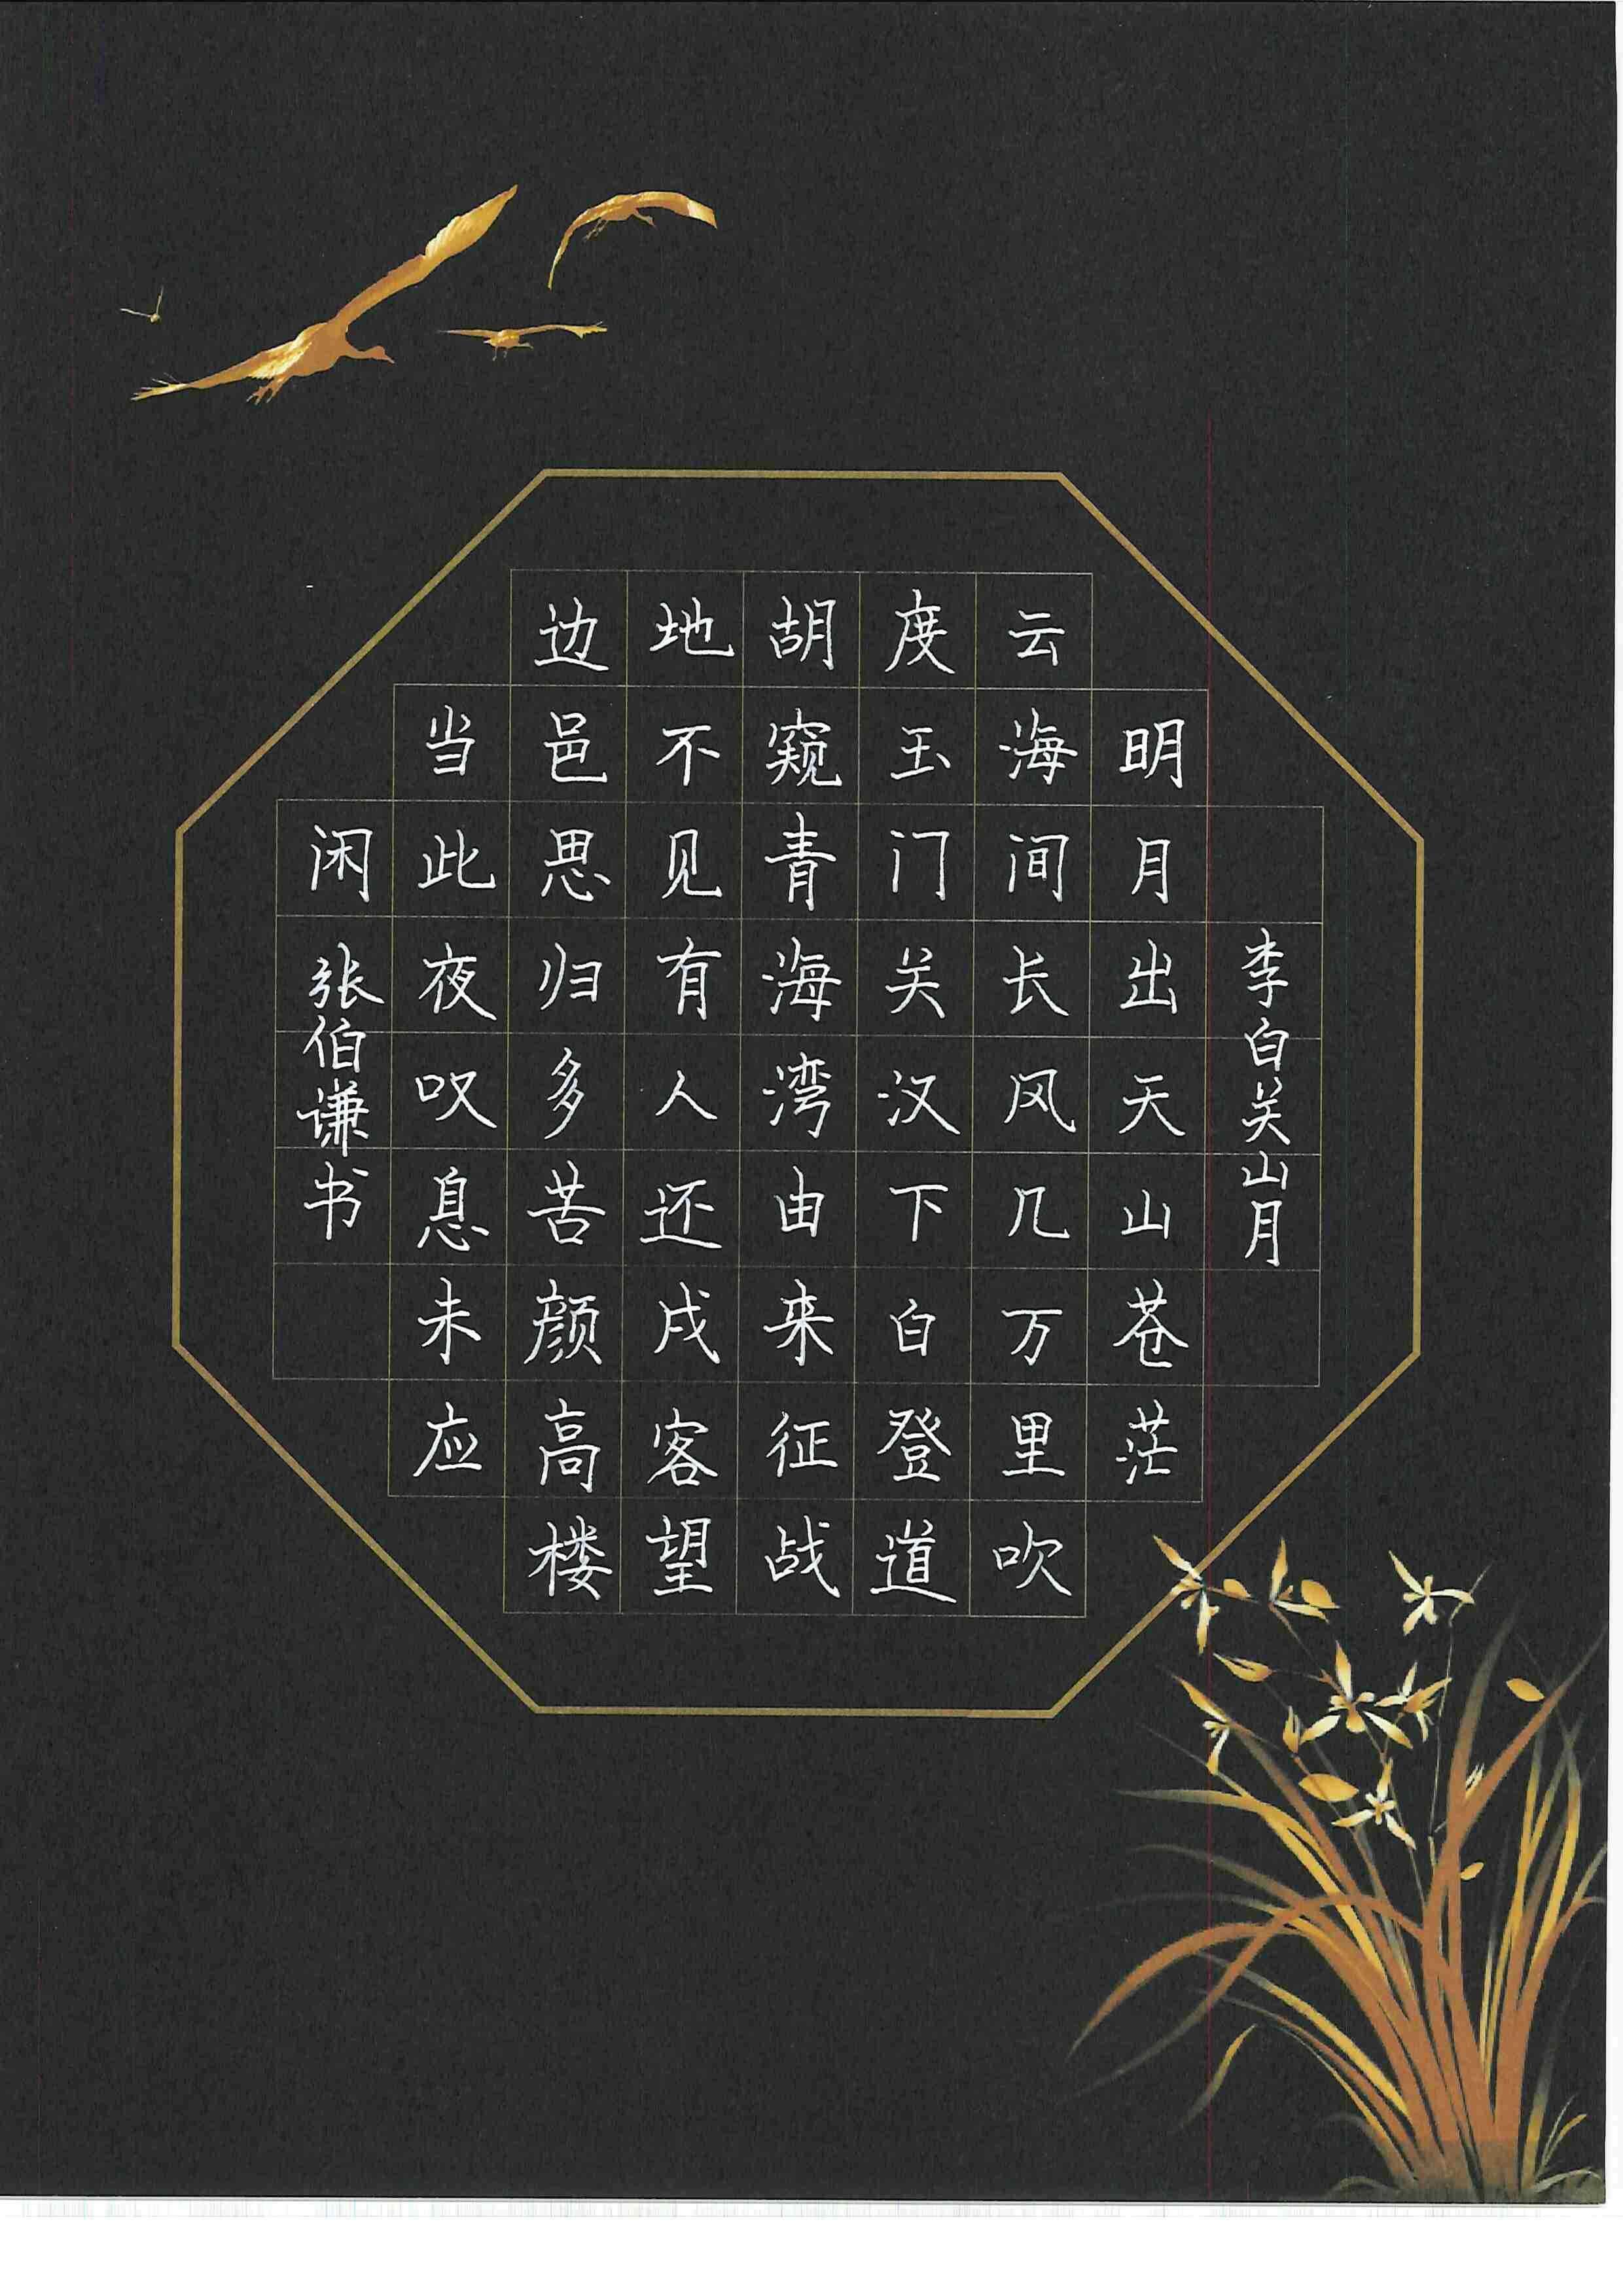 李白关山月
明月出天山苍茫
云海间长风几万里吹
度玉门关汉下白登道
胡窥青海湾由来征战
地不见有人还戍客望
边邑思归多苦颜高楼
当此夜叹息未应
闲 张伯谦书